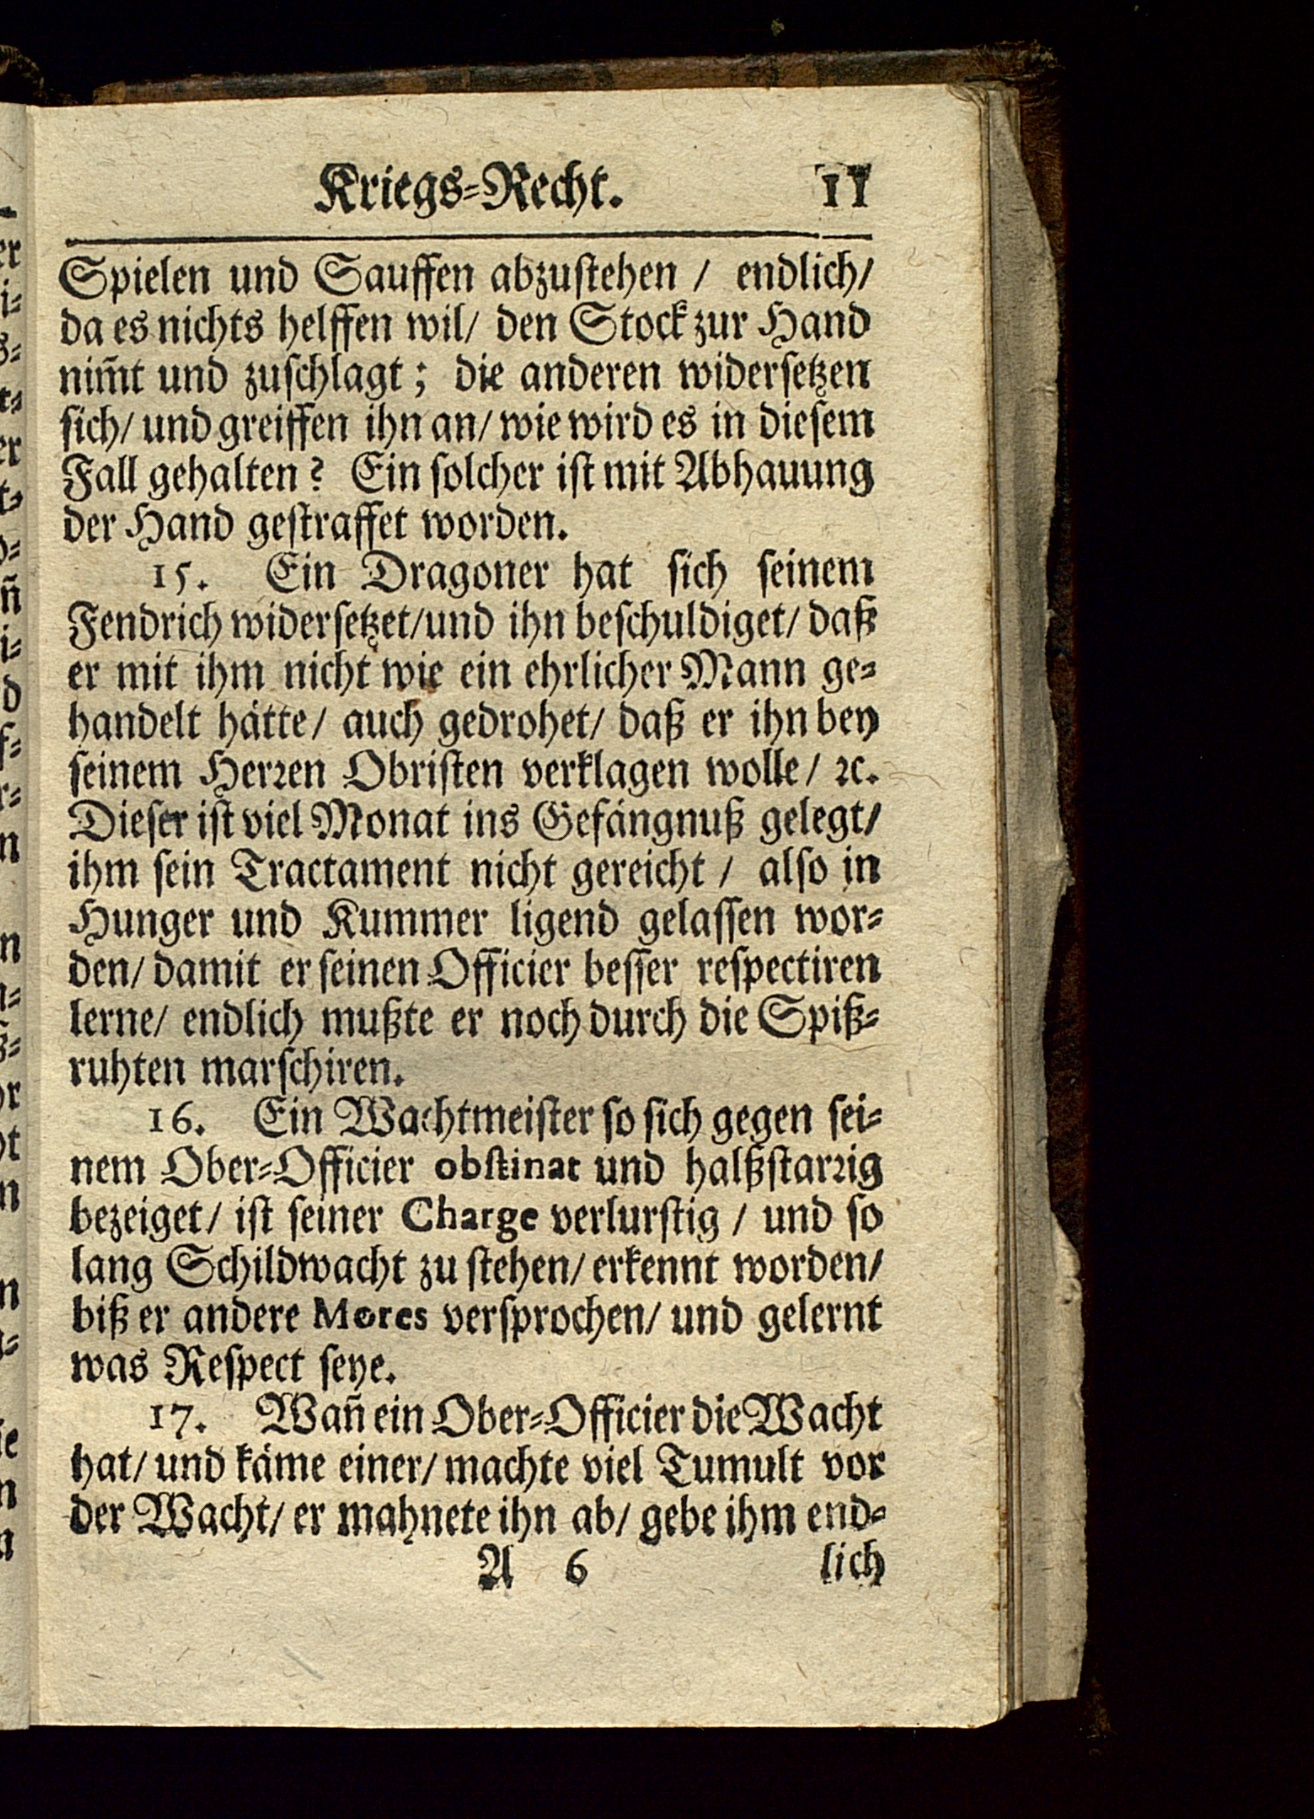 Kriegs-Recht. 11
Spielen und Sauffen abzustehen / endlich/
da es nichts helffen wil/ den Stock zur Hand
nim̃t und zuschlagt; die anderen widersetzen
sich/ und greiffen ihn an/ wie wird es in diesem
Fall gehalten? Ein solcher ist mit Abhauung
der Hand gestraffet worden.
15. Ein Dragoner hat sich seinem
Fendrich widersetzet/und ihn beschuldiget/ daß
er mit ihm nicht wie ein ehrlicher Mann ge-
handelt hätte/ auch gedrohet/ daß er ihn bey
seinem Herꝛen Obristen verklagen wolle/ ꝛc.
Dieser ist viel Monat ins Gefängnuß gelegt/
ihm sein Tractament nicht gereicht / also in
Hunger und Kummer ligend gelassen wor-
den/ damit er seinen Officier besser respectiren
lerne/ endlich mußte er noch durch die Spiß-
ruhten marschiren.
16. Ein Wachtmeister so sich gegen sei-
nem Ober-Officier obstinat und halßstarꝛig
bezeiget/ ist seiner Charge verlurstig / und so
lang Schildwacht zu stehen/ erkennt worden/
biß er andere Mores versprochen/ und gelernt
was Respect seye.
17. Wañ ein Ober-Officier die Wacht
hat/ und käme einer/ machte viel Tumult vor
der Wacht/ er mahnete ihn ab/ gebe ihm end-
A 6 lich